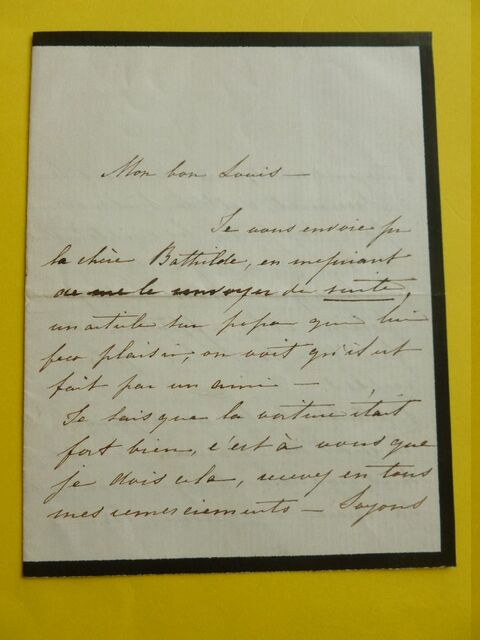 Mon bon Louis —
Je vous envoie pr
la chère Bathilde, en me priant
de me le renvoyer de suite,
un article sur papa qui lui
fera plaisir, on voit qu'il est
fait par un ami —
Je sais que la voiture était
fort bien, c'est à vous que
je dois cela, recevez en tous
mes remerciements — Soyons